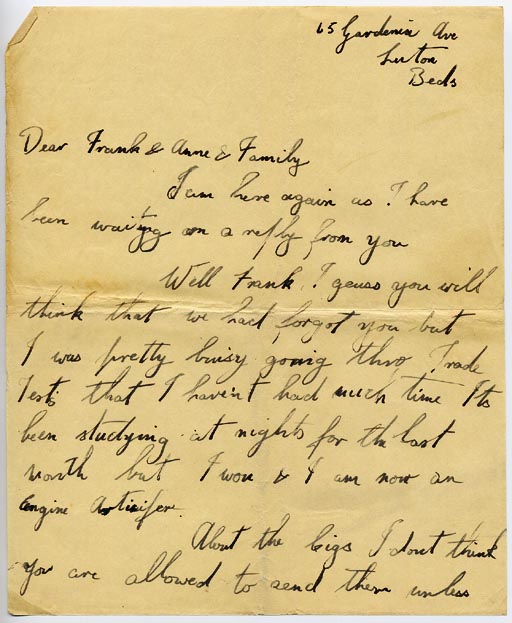 65 Gardenia Ave
Luton
Beds
Dear Frank & Anne & Family
I am here again as I have
been waiting on a reply from you
Well Frank I geuss you will
think that we had forgot you but
I was pretty buisy going thro Trade
Tests that I haven't had much time Its
been studying at nights for the last
month but I won & I am now an
Engine Artisifer.
About the cigs I dont think
you are allowed to send them unless